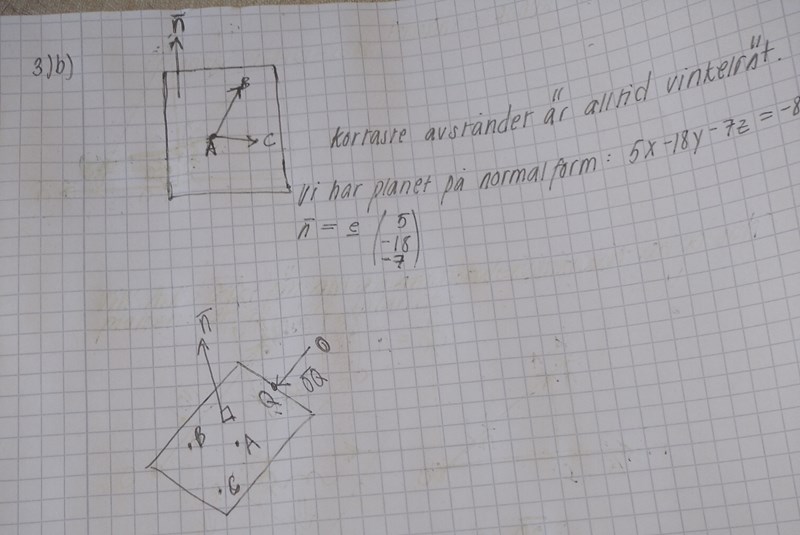 3)b)
n̄
B
A
C
Kortaste avståndet är alltid vinkelrät.
Vi har planet på normalform: 5x-18y-7z=-8
n̄ = e ( 5
-18
-7 )
n̄
O
Q
OQ
B
A
C